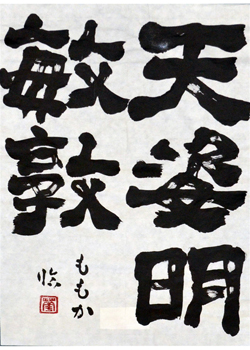 天姿明
敏敦
ももか
臨